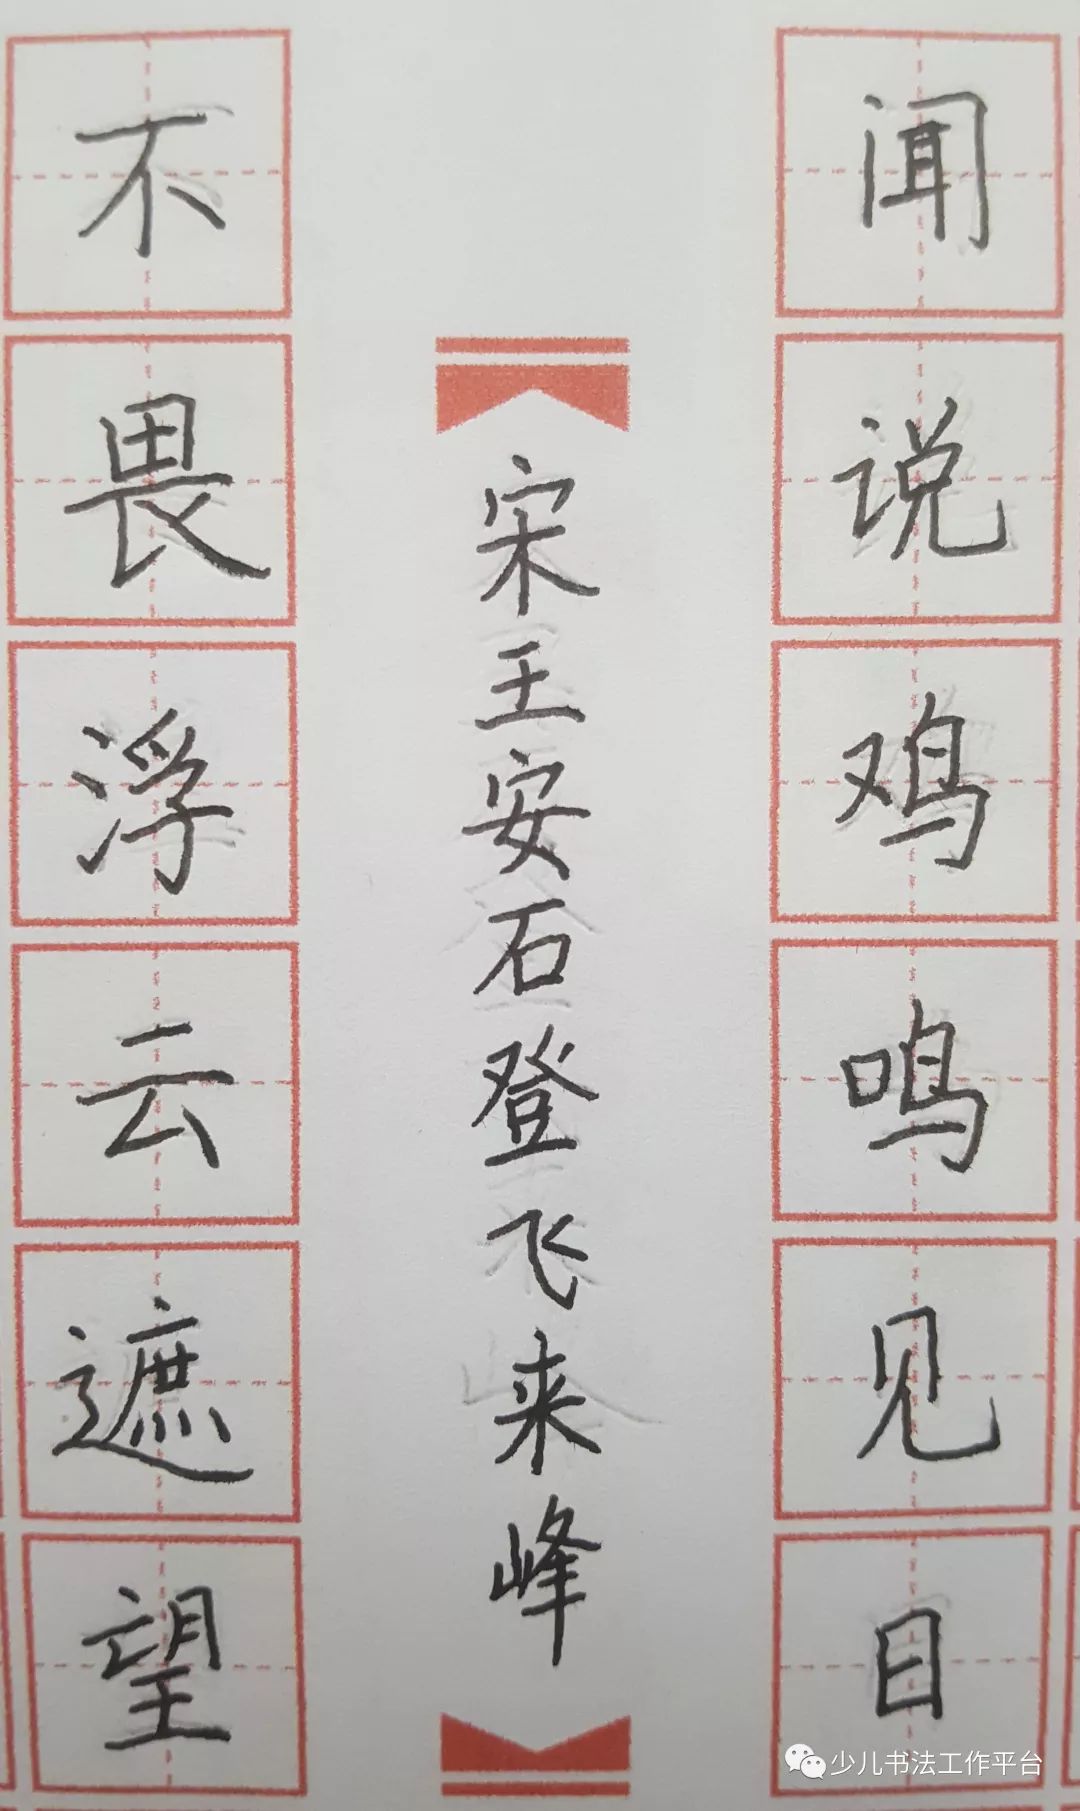 闻说鸡鸣见日
宋王安石登飞来峰
不畏浮云遮望
少儿书法工作平台